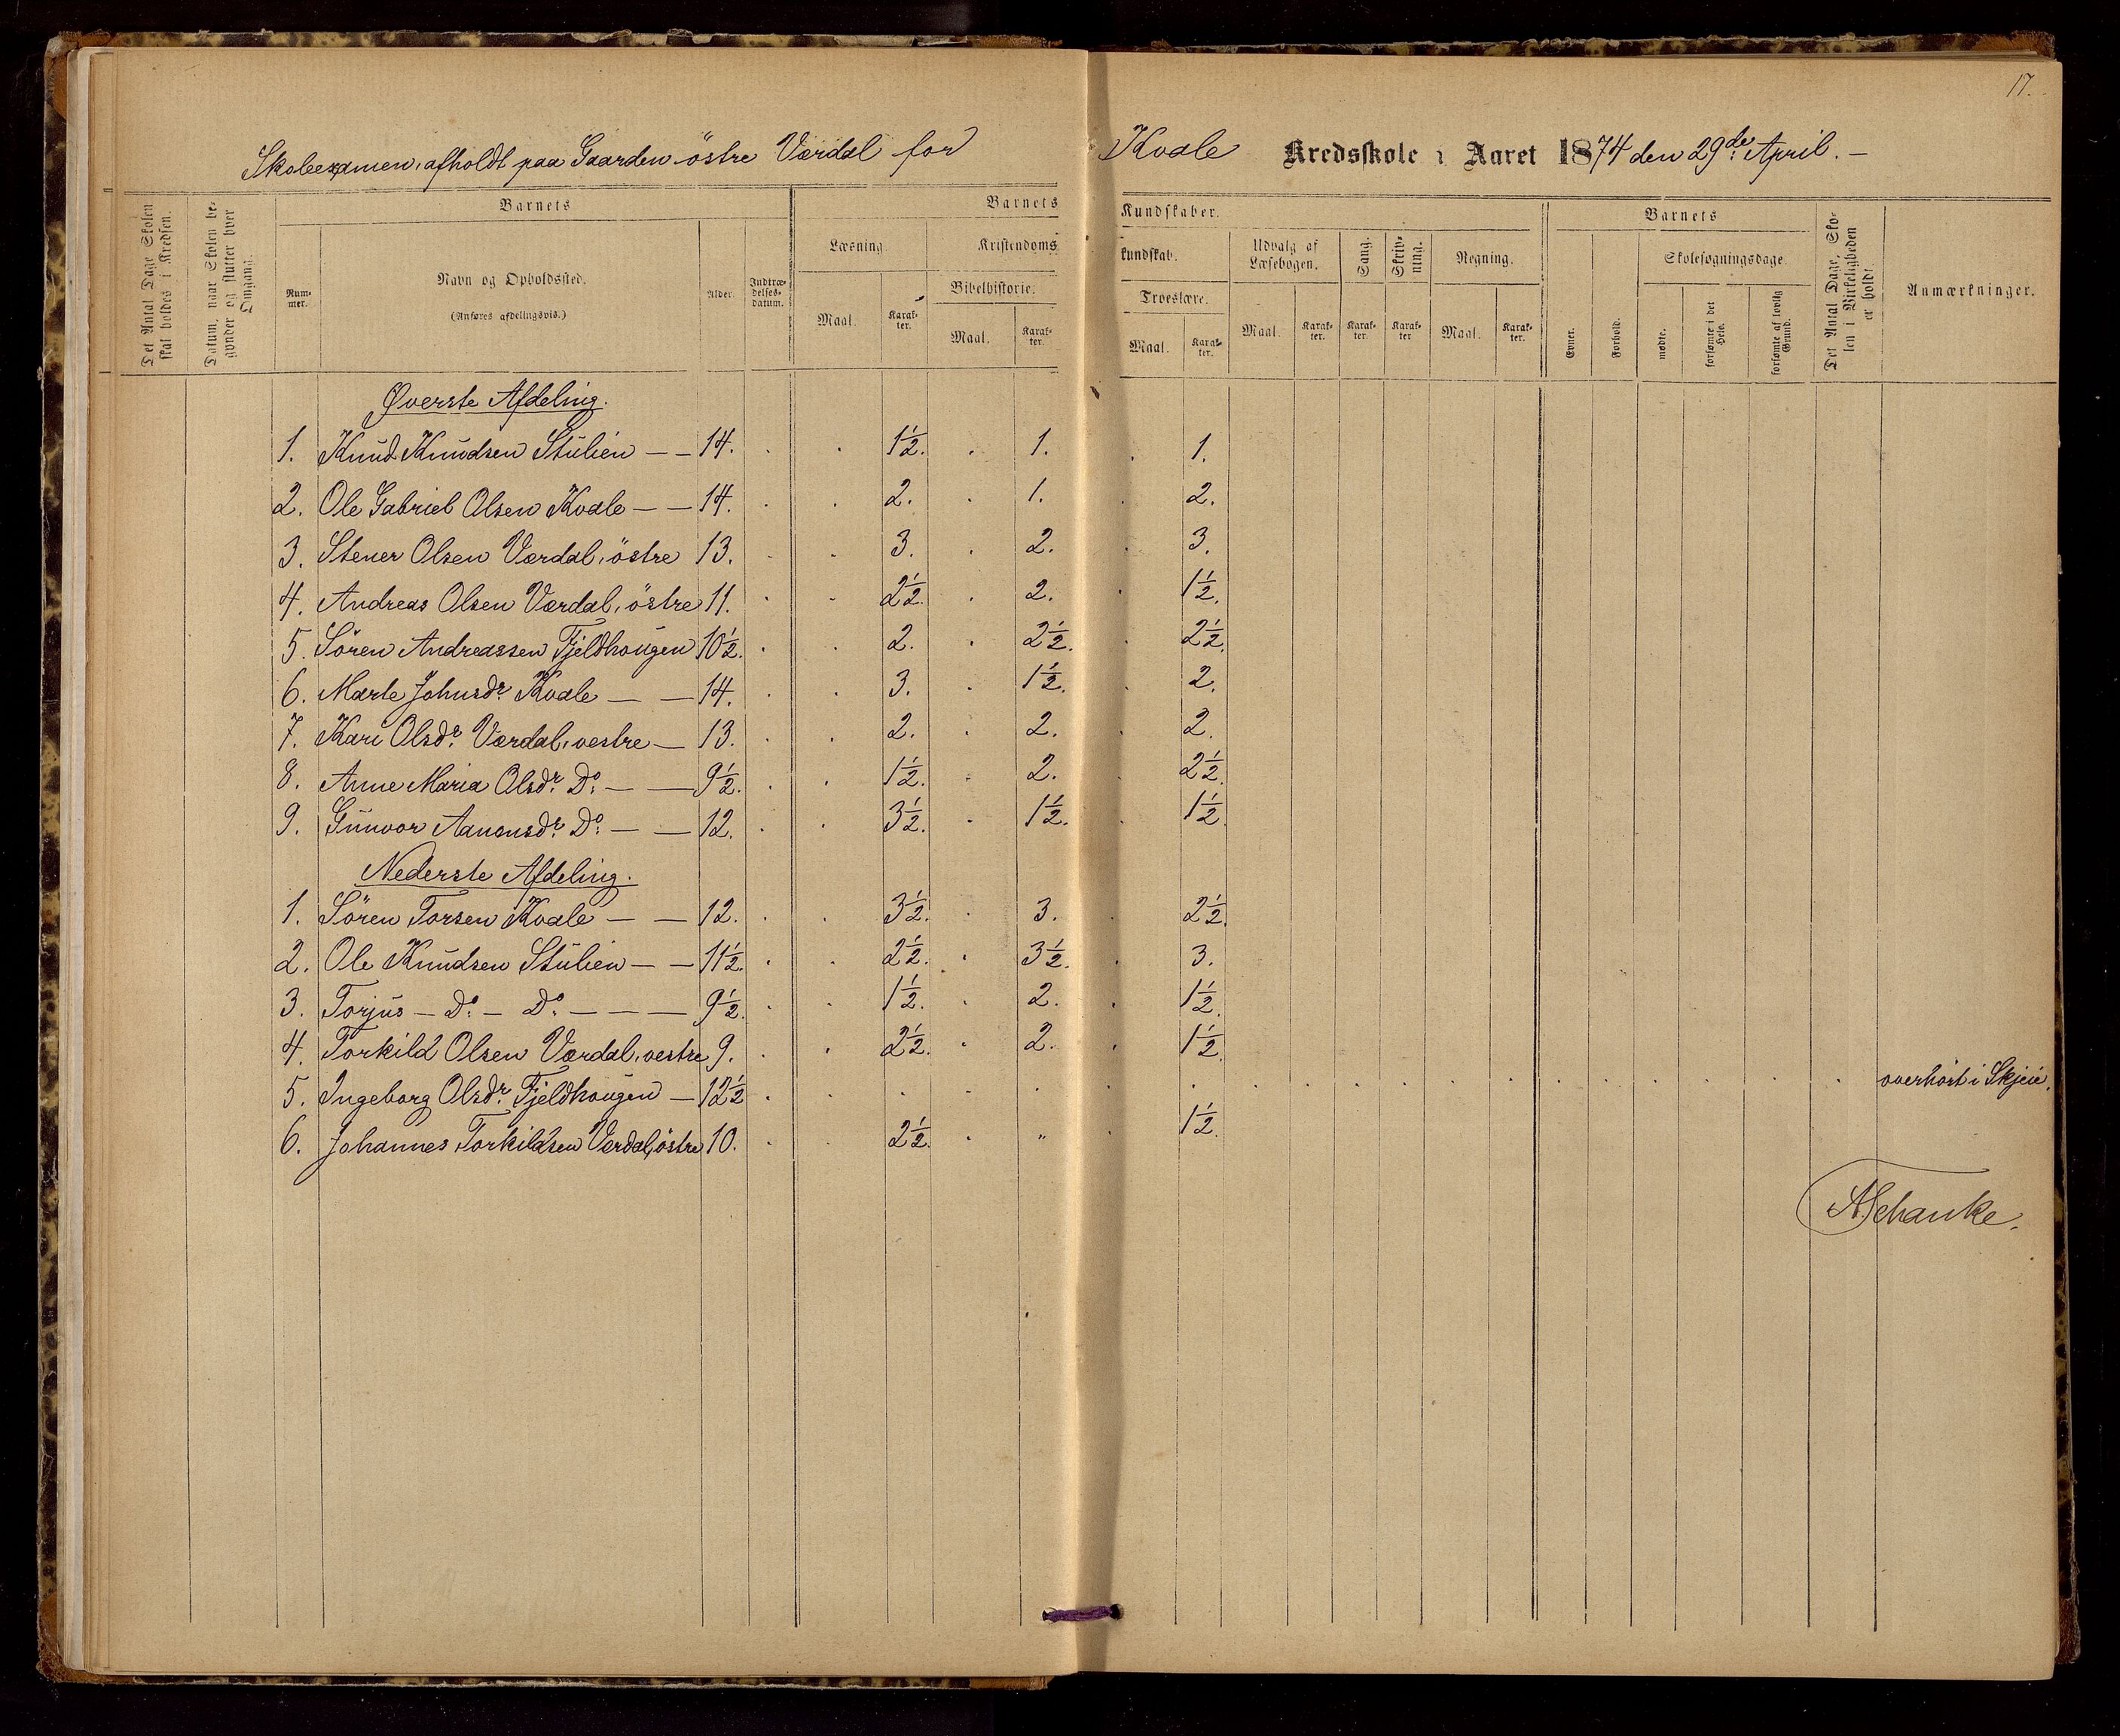 17.
Skoleexamen, afholdt paa Gaarden östre Værdal for Kvale Kredsskole i Aaret 1874 den 29de April. —
Det Antal Dage Skolen skal holdes i Kredsen.
Datum, naar Skolen begynder og slutter hver Omgang.
Barnets
Nummer.
Navn og Opholdssted.
(Anføres afdelingsvis.)
Alder.
Indtrædelsesdatum.
Barnets Kundskaber.
Læsning.
Maal.
Karakter.
Kristendomskundskab.
Bibelhistorie.
Maal.
Karakter.
Troeslære.
Maal.
Karakter.
Udvalg af Læsebogen.
Maal.
Karakter.
Sang.
Karakter.
Skrivning.
Karakter
Regning.
Maal.
Karakter.
Barnets
Evner.
Forhold.
Skolesøgningsdage.
mødte.
forsømte i det Hele.
forsømte af lovlig Grund.
Det Antal Dage, Skolen i Virkeligheden er holdt.
Anmærkninger.
Øverste Afdeling.
1. Knud Knudsen Stulien — — 14. 1½. 1. 1.
2. Ole Gabriel Olsen Kvale — — 14. 2. 1. 2.
3. Stener Olsen Værdal, östre 13. 3. 2. 3.
4. Andreas Olsen Værdal, östre 11. 2½. 2. 1½.
5. Sören Andreassen Fjeldhougen 10½. 2. 2½. 2½.
6. Marte Johnsdr. Kvale — — 14. 3. 1½. 2.
7. Kari Olsdr. Værdal, vestre — 13. 2. 2. 2.
8. Anne Maria Olsdr. Do. — — 9½. 1½. 2. 2½.
9. Gunvor Aanonsdr. Do. — — 12. 3½. 1½. 1½.
Nederste Afdeling.
1. Sören Torsen Kvale — — 12. 3½. 3. 2½.
2. Ole Knudsen Stulien — — 11½. 2½. 3½. 3.
3. Torjus — Do. — Do. — — — 9½. 1½. 2. 1½.
4. Torkild Olsen Værdal, vestre 9. 2½. 2. 1½.
5. Ingeborg Olsdr. Fjeldhougen — 12½ overhört i Skjeie.
6. Johannes Torkildsen Værdal, östre 10. 2½. " 1½.
ASchanke.